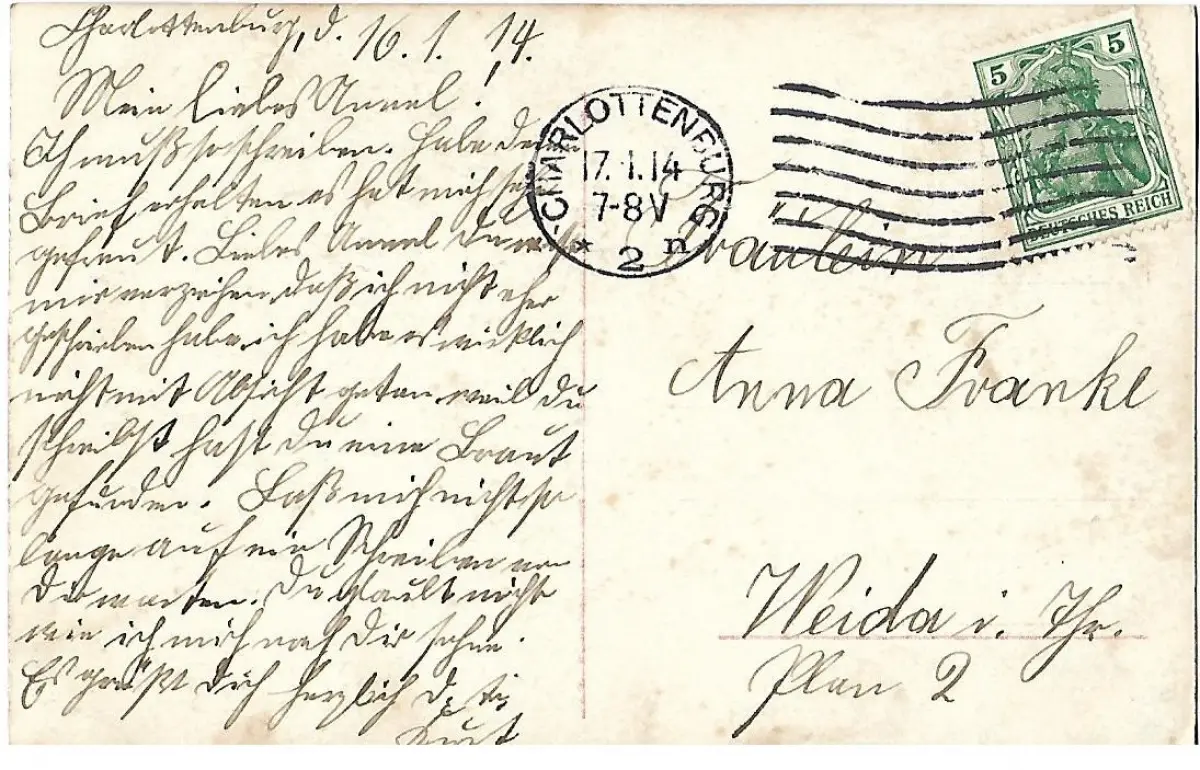 Charlottenburg, d. 16. 1. 14.
Mein liebes Annel!
Ich muß so schreiben. Habe dein
Brief erhalten es hat mich sehr
gefreut. Liebes Annel du mußt
mir verzeihen, daß ich nicht eher
geschrieben habe ich habe es wirklich
nicht mit Absicht getan weil du
schreibst hast du eine Braut
gefunden. Laß mich nicht so
lange auf ein Schreiben von
Dir warten. Du glaubst nicht
wie ich mich nach Dir sehne.
Es grüßt Dich herzlich
Kurt
CHARLOTTENBURG
17.1.14
7-8V
* 2 n
5 5
DEUTSCHES REICH
Fräulein
Anna Franke
Weida i. Thr.
Plan 2